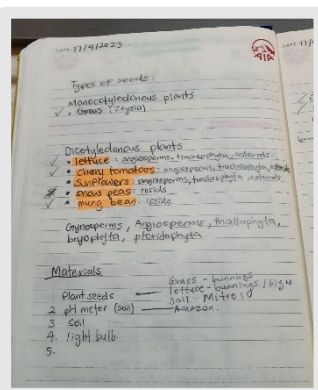 DATE 17/4/2023
AIA
Types of seeds:
Monocotyledonous plants
• Grass (Zoysia)
Dicotyledonous plants
• lettuce : angiosperms, tracheophyta, asterids
• cherry tomatoes : angiosperms, tracheophyta, asterids
• Sunflowers : angiosperms, tracheophyta, asterids
• snow peas : rosids
• mung bean : rosids
Gymnosperms, Angiosperms, thallophyta,
bryophyta, pteridophyta
Materials
1. Plant seeds — Grass - bunnings
lettuce - bunnings / big w
soil - Mitre 1
2. pH meter (soil) — Amazon.
3. Soil
4. light bulb
5.